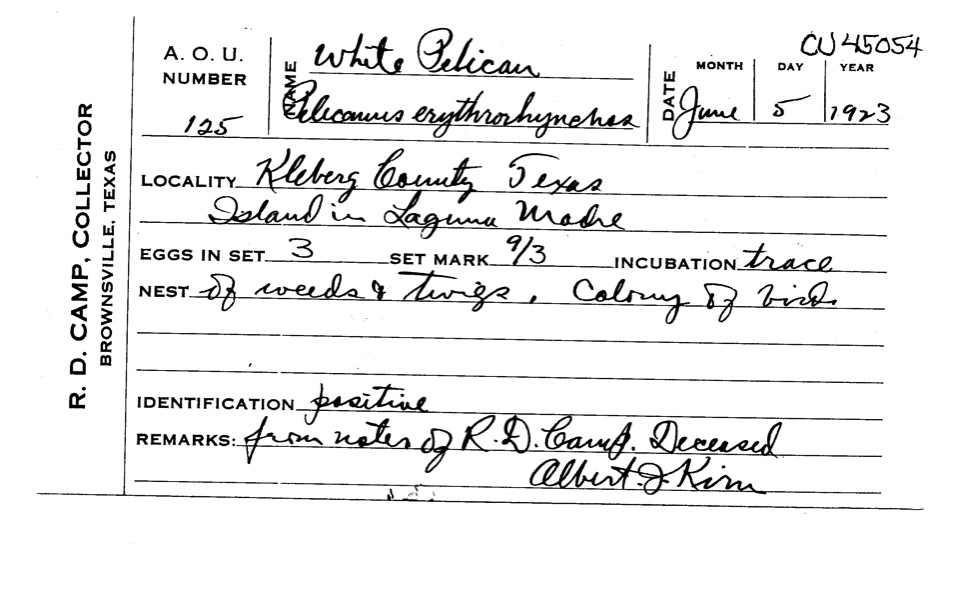 CU 45054
R. D. CAMP, COLLECTOR
BROWNSVILLE, TEXAS
A. O. U.
NUMBER
125
NAME
White Pelican
Pelicanus erythrorhynchos
DATE
MONTH DAY YEAR
June 5 1923
LOCALITY Kleberg County Texas
Island in Laguna Madre
EGGS IN SET 3 SET MARK 9/3 INCUBATION trace
NEST of weeds & twigs. Colony of birds
IDENTIFICATION positive
REMARKS: from notes of R.D. Camp. Deceased
Albert J. Kirn